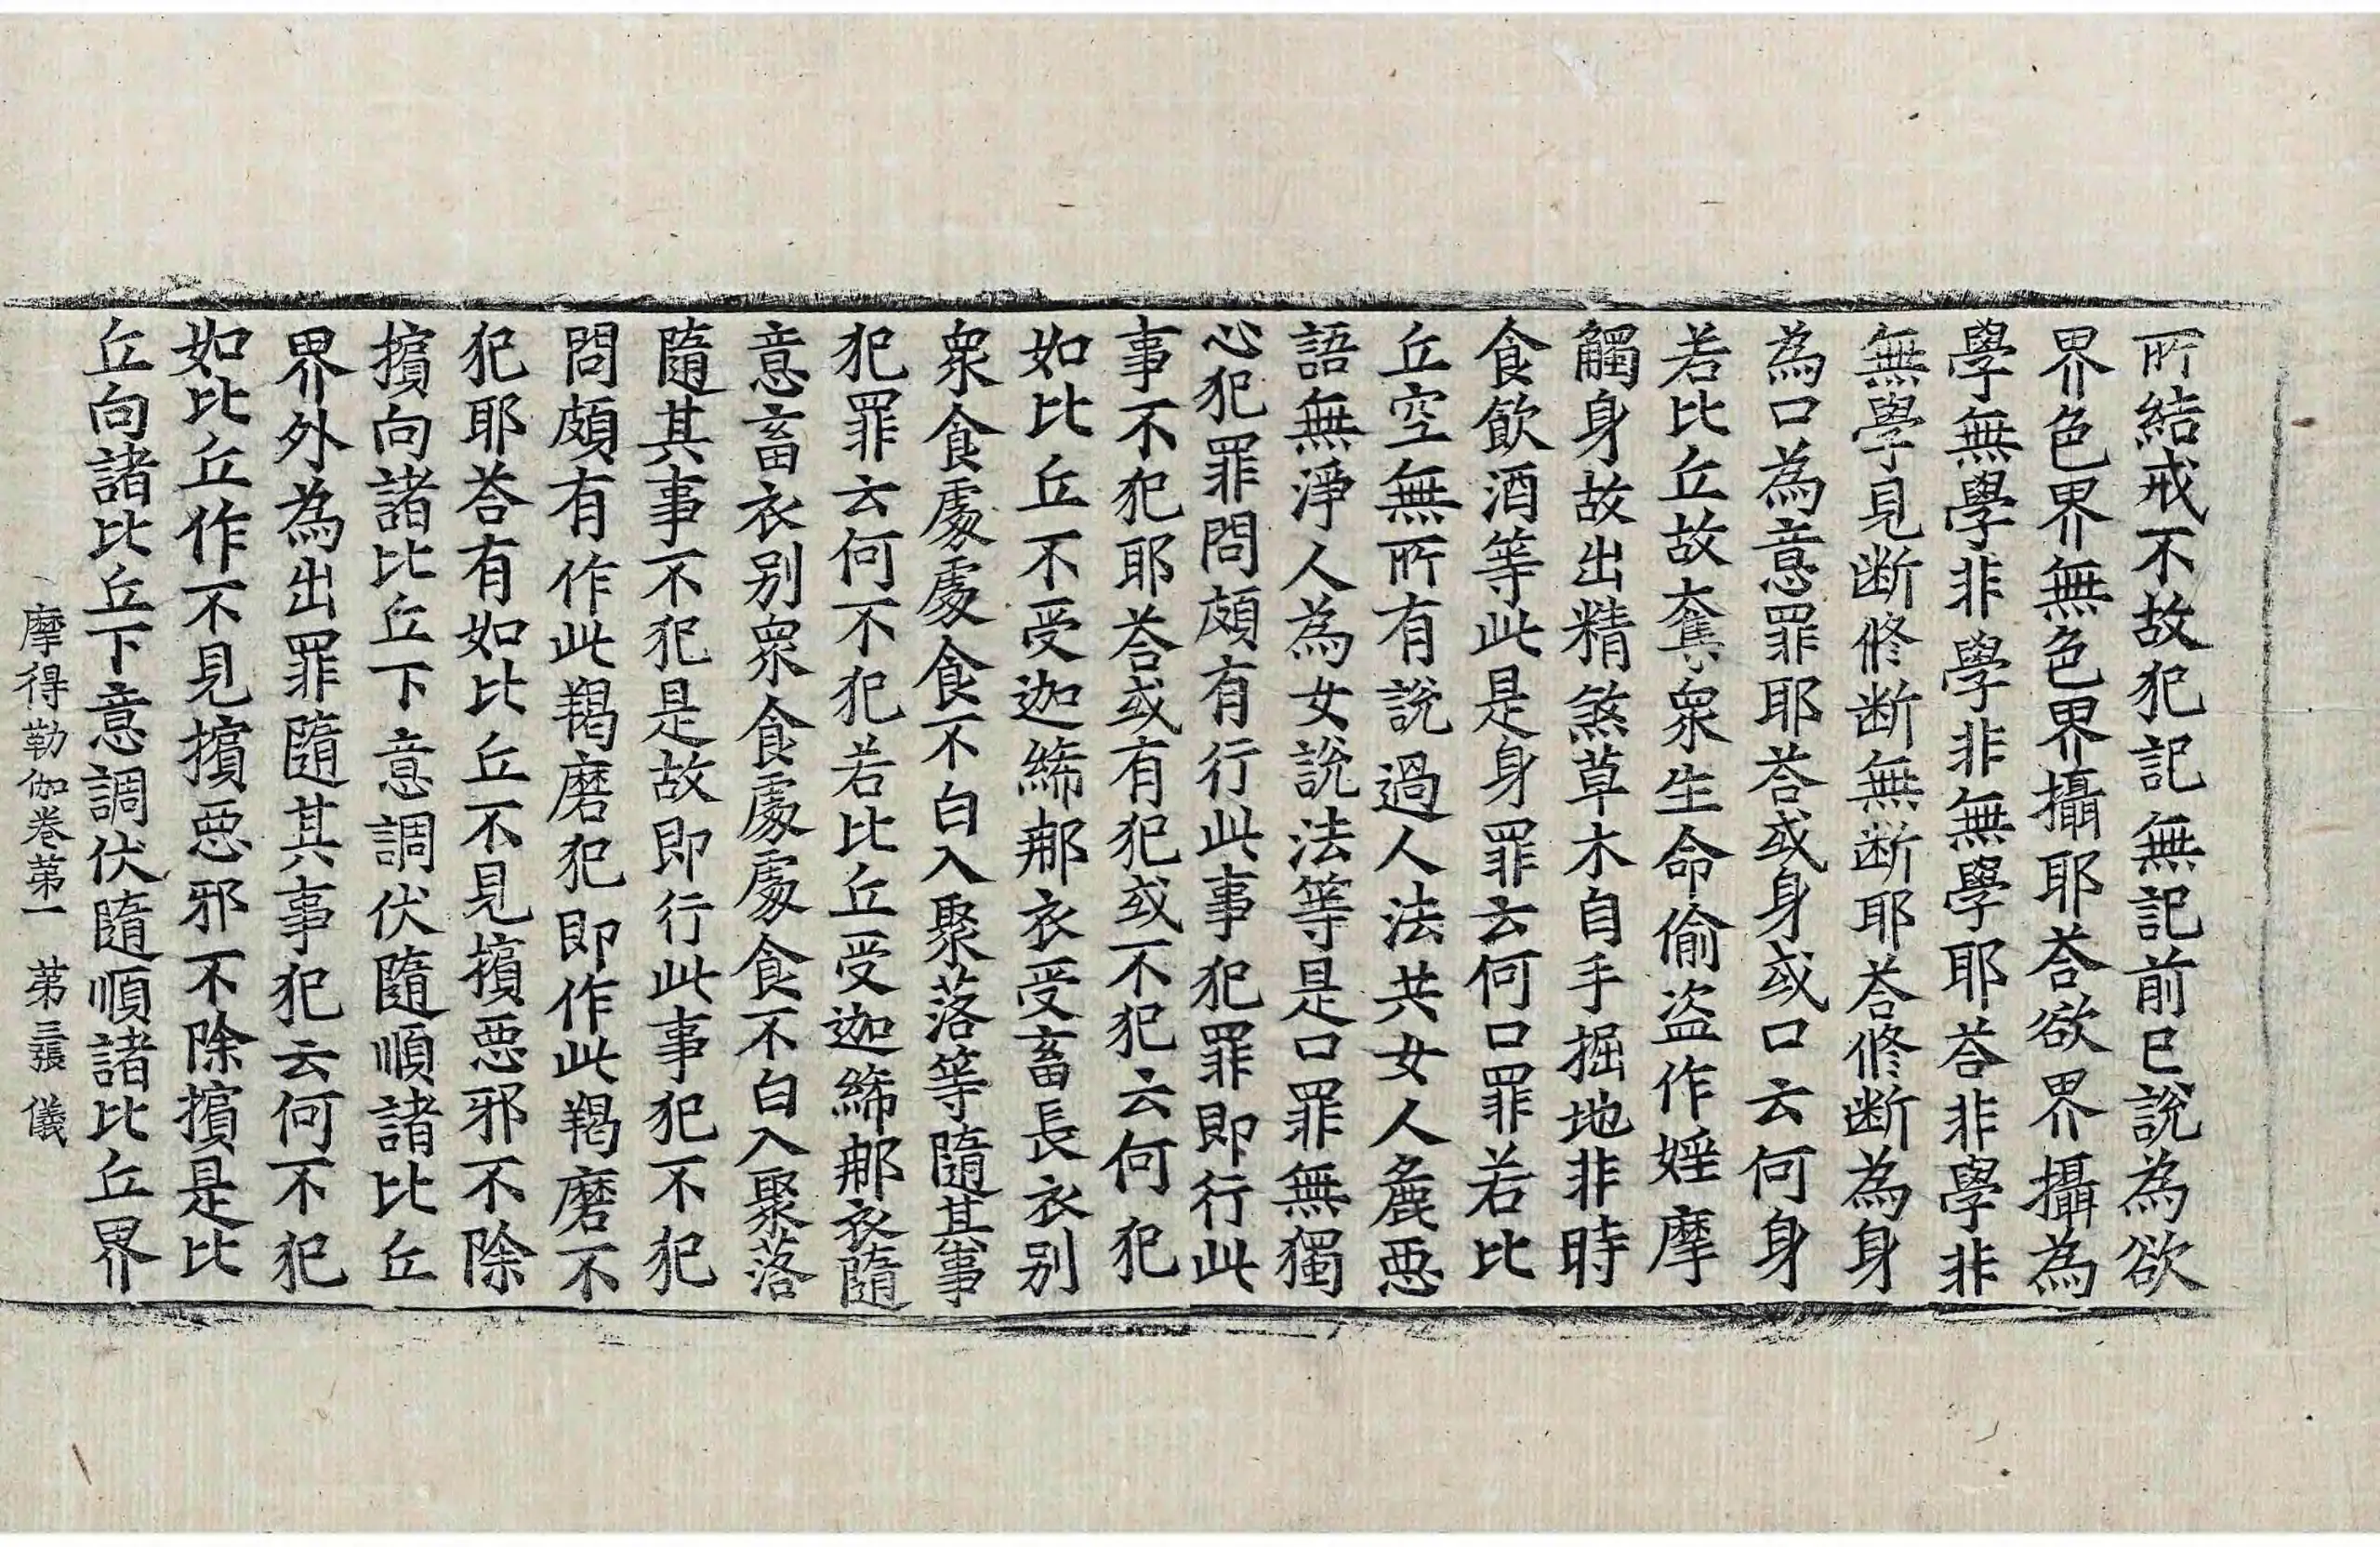 所結戒不故犯記無記前已說為欲
界色界無色界攝耶荅欲界攝為
學無學非學非無學耶荅非學非
無學見断修断無断耶荅修断為身
為口為意罪耶荅或身或口云何身
若比丘故奪衆生命偷盗作婬摩
觸身故出精煞草木自手掘地非時
食飲酒等此是身罪云何口罪若比
丘空無所有說過人法共女人麁惡
語無淨人為女說法等是口罪無獨
心犯罪問頗有行此事犯罪即行此
事不犯耶荅或有犯或不犯云何犯
如比丘不受迦絺那衣受畜長衣别
衆食處處食不白入聚落等隨其事
犯罪云何不犯若比丘受迦絺那衣隨
意畜衣别衆食處處食不白入聚落
隨其事不犯是故即行此事犯不犯
問頗有作此羯磨犯即作此羯磨不
犯耶荅有如比丘不見擯惡邪不除
擯向諸比丘下意調伏隨順諸比丘
界外為出罪隨其事犯云何不犯
如比丘作不見擯惡邪不除擯是比
丘向諸比丘下意調伏隨順諸比丘界
摩得勒伽卷第一 第三張 儀